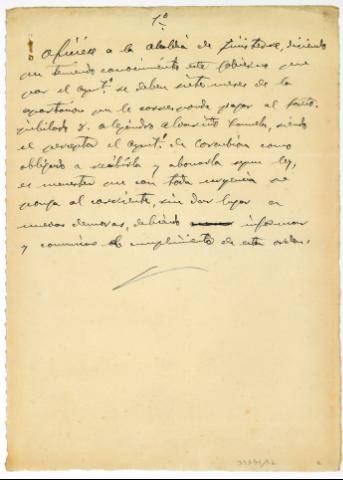 1º
Ofíciese a la alcaldía de Finisterre, diciendo
que teniendo conocimiento este Gobierno que
por el aynt.º se deben siete meses de la
aportación que le corresponde pagar al
jubilado D. Alejandro, siendo
el perceptor el aynt.º de Corcubión como
obligado a recibirla y abonarla según ley,
es menester que con toda urgencia se
ponga al corriente, sin dar lugar a
nuevas demoras, debiendo informar
y comunicar el cumplimiento de esta orden.